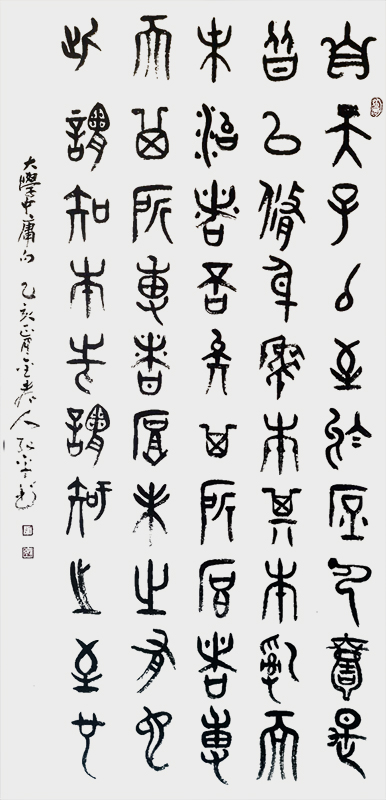 自天子以至於庶人壹是
皆以脩身為本其本亂而
末治者否矣其所厚者薄
而其所薄者厚未之有也
此謂知本此謂知之至也
大學中庸句 乙亥 人